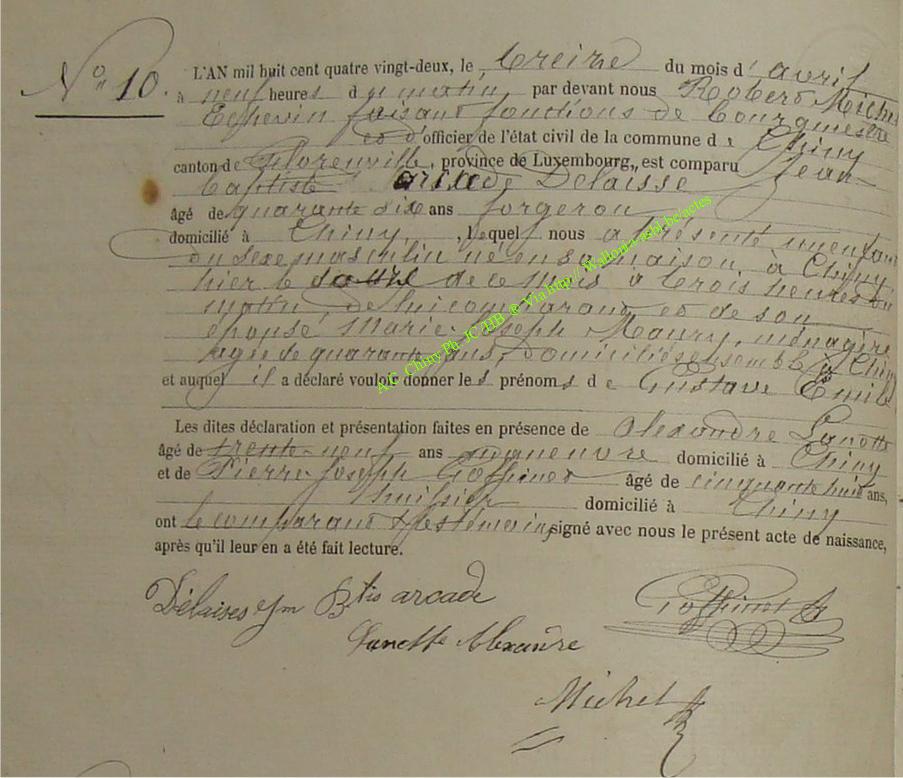 N° 10.
L'AN mil huit cent quatre vingt-deux, le treize du mois d'avril
à neuf heures du matin, par devant nous Robert Michel
Echevin faisant fonctions de bourgmestre
et d'officier de l'état civil de la commune de Chiny
canton de Florenville, province de Luxembourg, est comparu Jean
Baptiste arcade Delaisse
âgé de quarante six ans forgeron
domicilié à Chiny, lequel nous a présenté un enfant
du sexe masculin né en sa maison à Chiny
hier le de ce mois à trois heures du
matin, de lui comparant et de son
épouse Marie Joseph Maury, ménagère
agée de quarante ans, domiciliés ensemble à Chiny
et auquel il a déclaré vouloir donner les prénoms de Gustave Emile
Les dites déclaration et présentation faites en présence de Alexandre Lanotte
âgé de trente-neuf ans manœuvre domicilié à Chiny
et de Pierre-Joseph Goffinet âgé de cinquante huit ans,
huissier domicilié à Chiny
ont le comparant & les témoins signé avec nous le présent acte de naissance,
après qu'il leur en a été fait lecture.
Delaisse Jn Btis arcade
Goffinet
Lanotte Alexandre
Michel R
A.G. Chiny Ph JC/HB @ Via http//Wallonia-asbl-be/actes